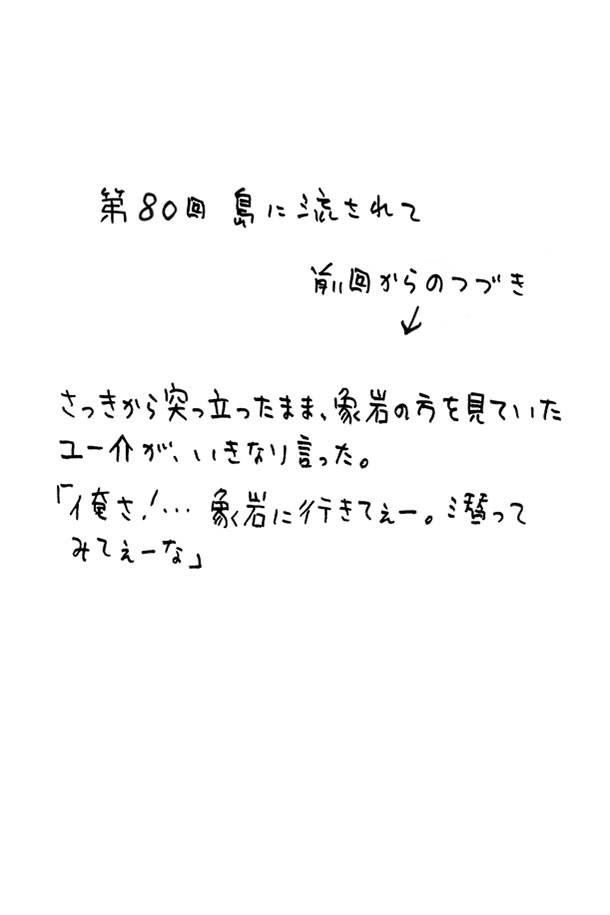 第80回 島に流されて
前回からのつづき
↓
さっきから突っ立ったまま、象岩の方を見ていた
ユー介が、いきなり言った。
「俺さ!… 象岩に行きてぇー。潜って
みてぇーな」